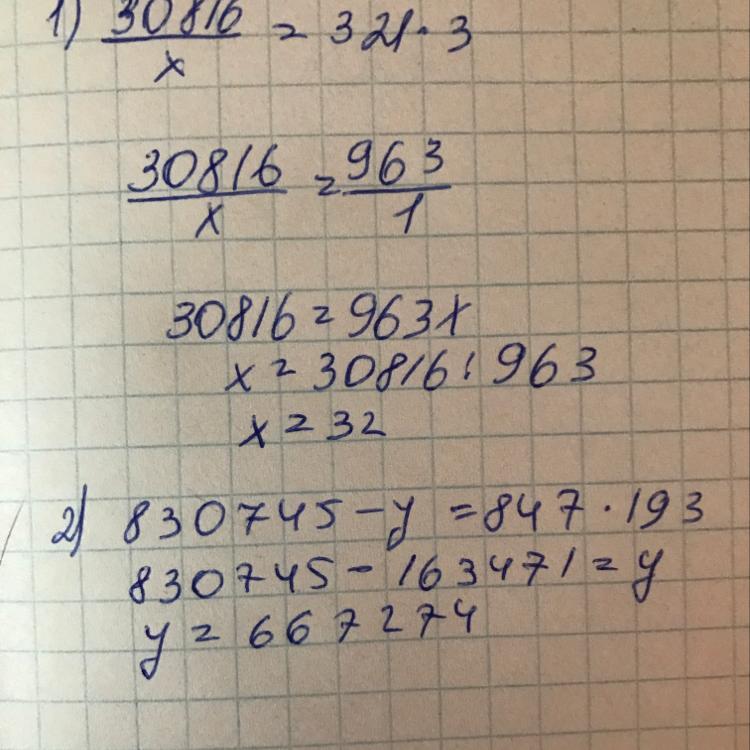 1) 30816/x = 321·3
30816/x = 963/1
30816 = 963x
x = 30816 : 963
x = 32
2) 830745 - y = 847 · 193
830745 - 163471 = y
y = 667274